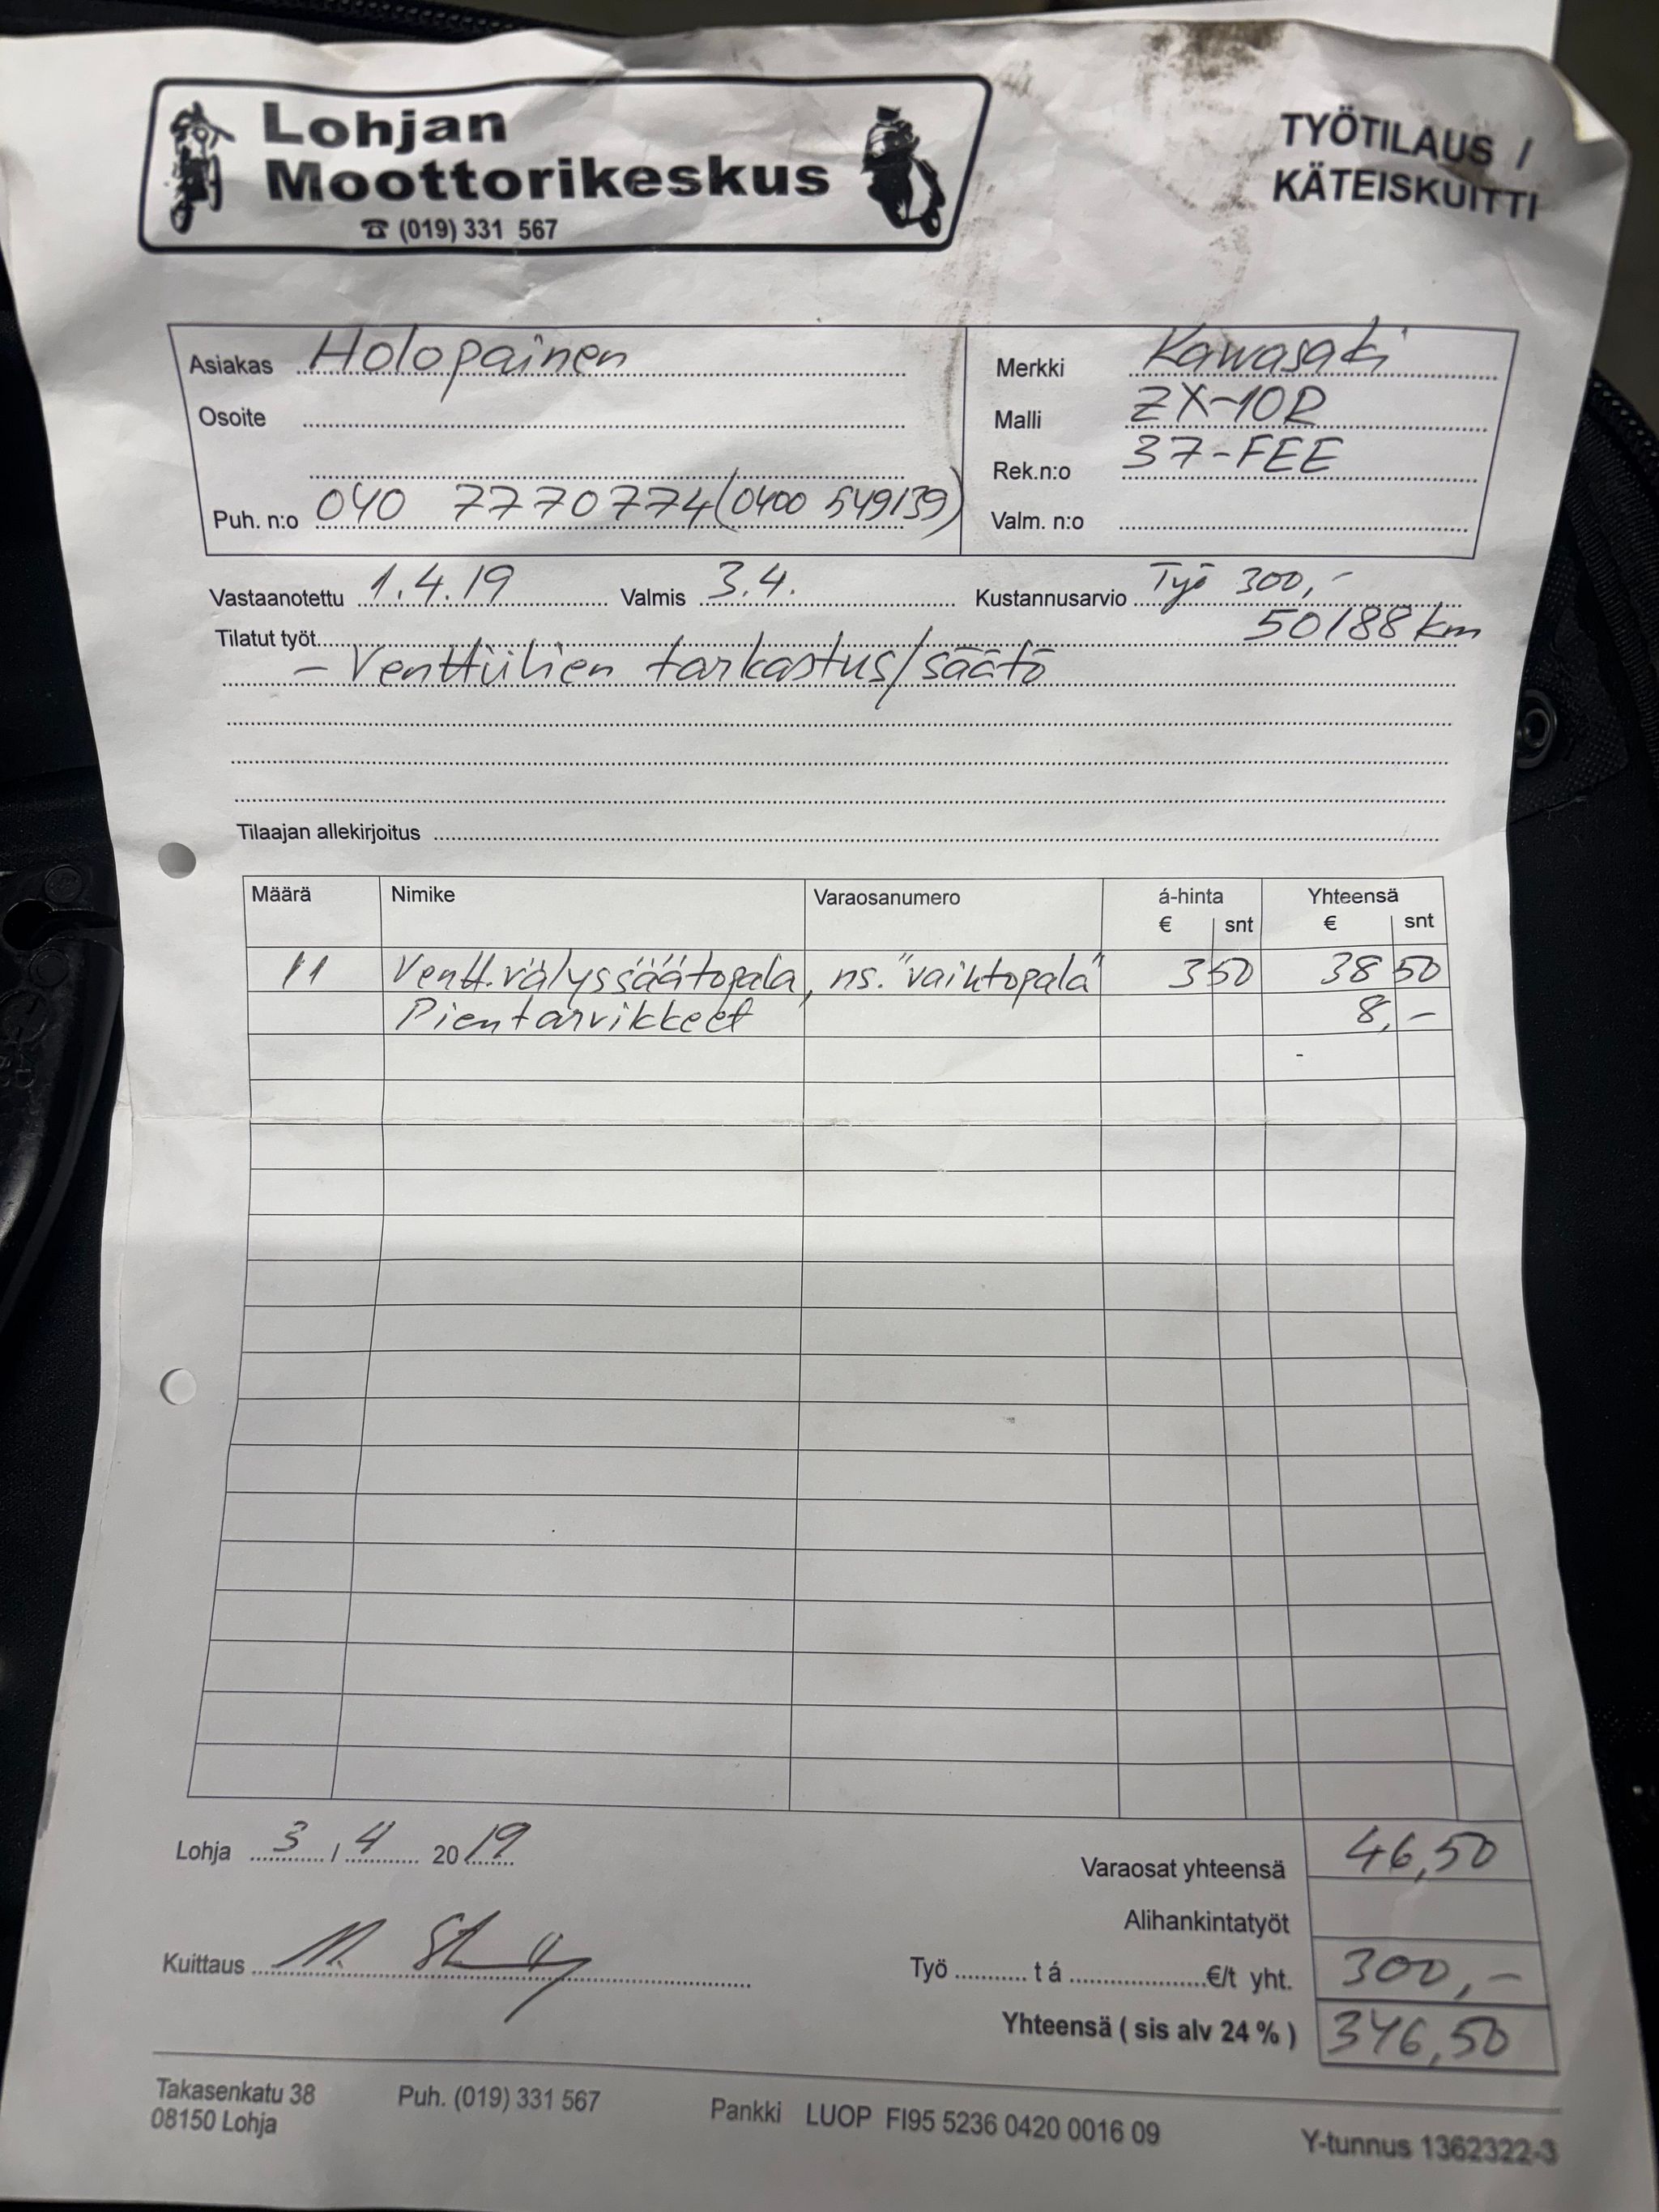 Lohjan
Moottorikeskus
☎ (019) 331 567
TYÖTILAUS /
KÄTEISKUITTI
Asiakas Holopainen
Osoite
Puh. n:o 040 7770774 (0400 549139)
Merkki Kawasaki
Malli ZX-10R
Rek.n:o 37-FEE
Valm. n:o
Vastaanotettu 1.4.19 Valmis 3.4. Kustannusarvio Työ 300,-
Tilatut työt 50188 km
- Venttiilien tarkastus/säätö
Tilaajan allekirjoitus
Määrä Nimike Varaosanumero á-hinta Yhteensä
€ snt € snt
11 Ventt.välyssäätöpala, ns. "vaihtopala" 3 50 38 50
Pientarvikkeet 8,-
Lohja 3 / 4 2019
Varaosat yhteensä 46,50
Alihankintatyöt
Kuittaus
Työ ........... t á .....................€/t yht. 300,-
Yhteensä ( sis alv 24 % ) 346,50
Takasenkatu 38 Puh. (019) 331 567 Pankki LUOP FI95 5236 0420 0016 09 Y-tunnus 1362322-3
08150 Lohja